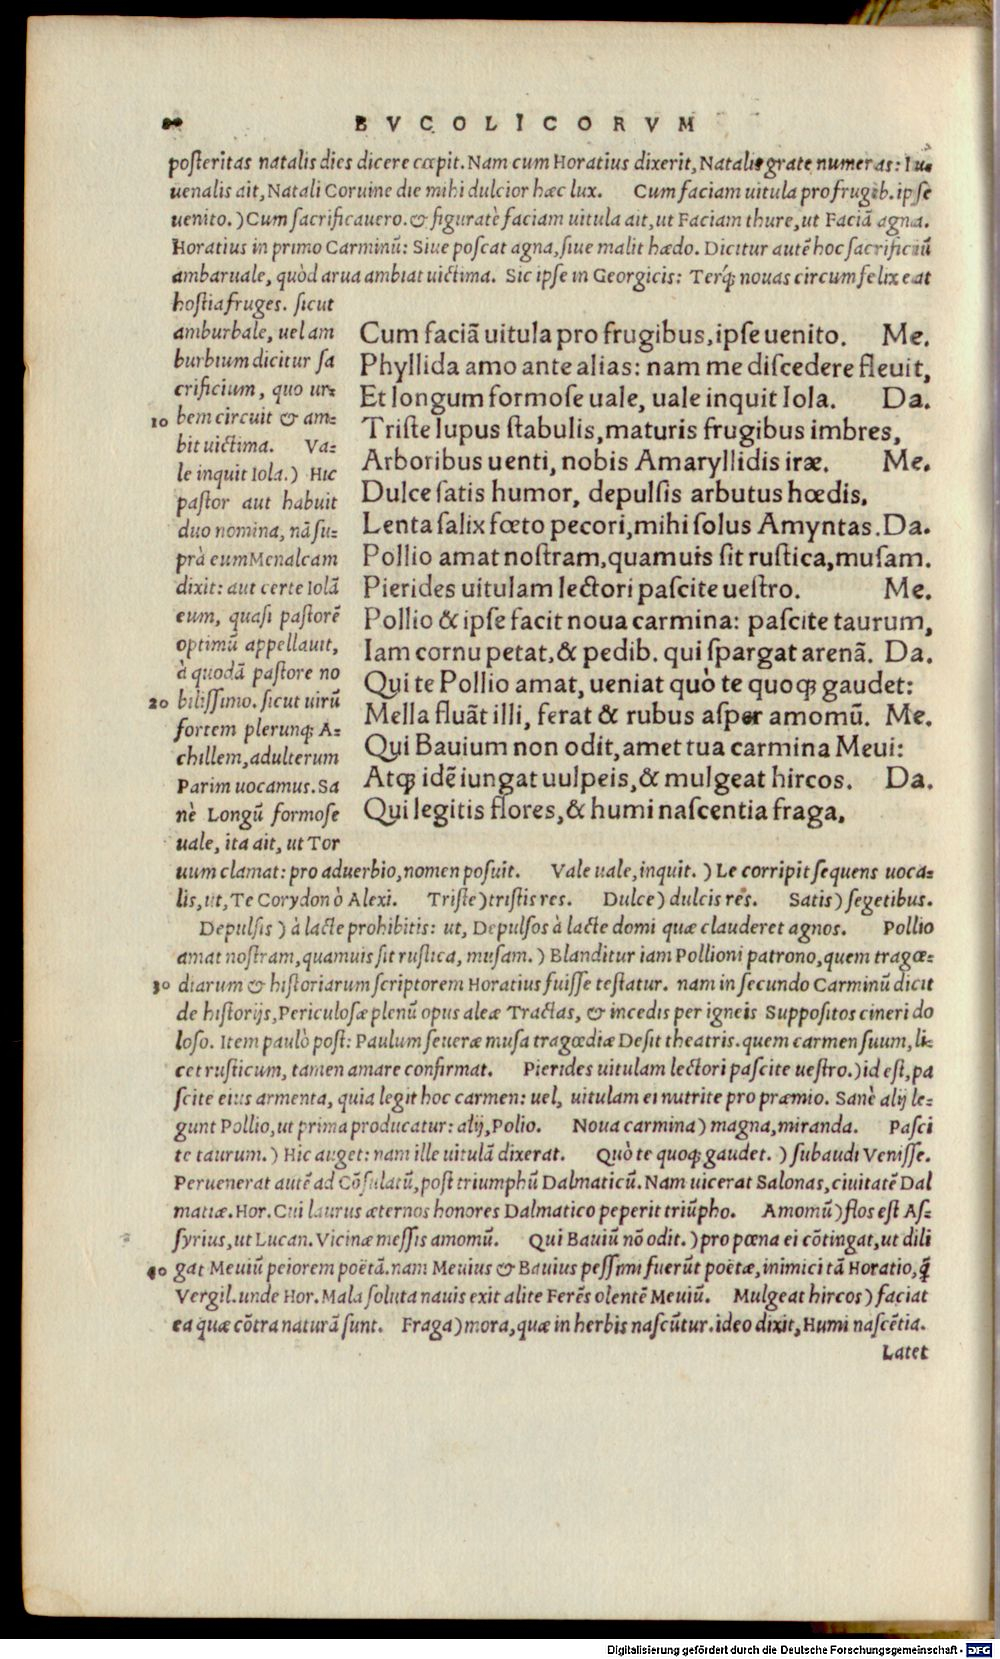 BVCOLICORVM
posteritas natalis dies dicere cœpit. Nam cum Horatius dixerit, Natalis grate numeras: Iu-
uenalis ait, Natali Coruine die mihi dulcior hæc lux. Cum faciam uitula pro frugib. ipse
uenito.) Cum sacrificauero. & figuratè faciam uitula ait, ut Faciam thure, ut Faciā agna.
Horatius in primo Carminū: Siue poscat agna, siue malit hædo. Dicitur autē hoc sacrificiū
ambaruale, quòd arua ambiat uictima. Sic ipse in Georgicis: Terq́; nouas circum felix eat
hostia fruges. sicut
amburbale, uel am
burbium dicitur sa
crificium, quo ur-
10 bem circuit & am-
bit uictima. Va-
le inquit Iola.) Hic
pastor aut habuit
duo nomina, nā su-
prà eum Menalcam
dixit: aut certe Iolā
eum, quasi pastorē
optimū appellauit,
à quodā pastore no
20 bilissimo. sicut uirū
fortem plerunq; A-
chillem, adulterum
Parim uocamus. Sa
nè Longū formose
uale, ita ait, ut Tor
Cum faciā uitula pro frugibus, ipse uenito. Me.
Phyllida amo ante alias: nam me discedere fleuit,
Et longum formose uale, uale inquit Iola. Da.
Triste lupus stabulis, maturis frugibus imbres,
Arboribus uenti, nobis Amaryllidis iræ. Me.
Dulce satis humor, depulsis arbutus hœdis,
Lenta salix fœto pecori, mihi solus Amyntas. Da.
Pollio amat nostram, quamuis sit rustica, musam.
Pierides uitulam lectori pascite uestro. Me.
Pollio & ipse facit noua carmina: pascite taurum,
Iam cornu petat, & pedib. qui spargat arenā. Da.
Qui te Pollio amat, ueniat quò te quoq; gaudet:
Mella fluāt illi, ferat & rubus asper amomū. Me.
Qui Bauium non odit, amet tua carmina Meui:
Atq; idē iungat uulpeis, & mulgeat hircos. Da.
Qui legitis flores, & humi nascentia fraga,
uum clamat: pro aduerbio, nomen posuit. Vale uale, inquit.) Le corripit sequens uoca-
lis, ut, Te Corydon ò Alexi. Triste) tristis res. Dulce) dulcis res. Satis) segetibus.
Depulsis) à lacte prohibitis: ut, Depulsos à lacte domi quæ clauderet agnos. Pollio
amat nostram, quamuis sit rustica, musam.) Blanditur iam Pollioni patrono, quem tragœ-
30 diarum & historiarum scriptorem Horatius fuisse testatur. nam in secundo Carminū dicit
de historijs, Periculosæ plenū opus aleæ Tractas, & incedis per igneis Suppositos cineri do
loso. Item paulò post: Paulum seueræ musa tragœdiæ Desit theatris. quem carmen suum, li-
cet rusticum, tamen amare confirmat. Pierides uitulam lectori pascite uestro.) id est, pa
scite eius armenta, quia legit hoc carmen: uel, uitulam ei nutrite pro præmio. Sanè alij le-
gunt Pollio, ut prima producatur: alij, Polio. Noua carmina) magna, miranda. Pasci
te taurum.) Hic auget: nam ille uitulā dixerat. Quò te quoq; gaudet.) subaudi Venisse.
Peruenerat autē ad Cōsulatū, post triumphū Dalmaticū. Nam uicerat Salonas, ciuitatē Dal
matiæ. Hor. Cui laurus æternos honores Dalmatico peperit triūpho. Amomū) flos est As-
syrius, ut Lucan. Vicinæ messis amomū. Qui Bauiū nō odit.) pro pœna ei cōtingat, ut dili
40 gat Meuiū peiorem poëtā. nam Meuius & Bauius pessimi fuerūt poëtæ, inimici tā Horatio, q̄
Vergil. unde Hor. Mala soluta nauis exit alite Ferēs olentē Meuiū. Mulgeat hircos) faciat
ea quæ cōtra naturā sunt. Fraga) mora, quæ in herbis nascūtur. ideo dixit, Humi nascētia.
Latet
Digitalisierung gefördert durch die Deutsche Forschungsgemeinschaft - DFG